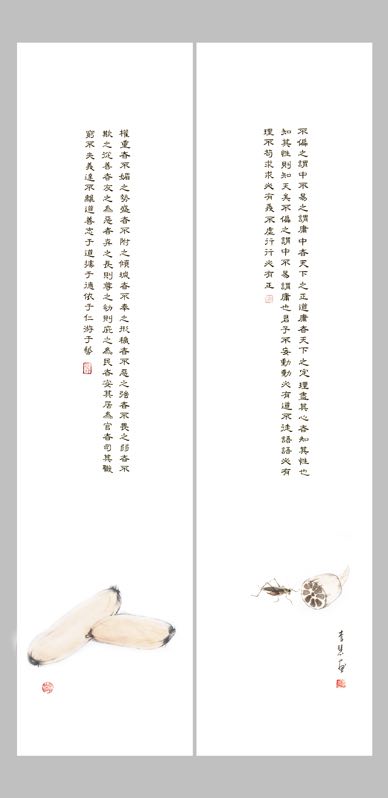 不偏之謂中不易之謂庸中者天下之正道庸者天下之定理盡其心者知其性也
知其性則知天矣不偏之謂中不易謂庸也君子不妄動動必有道不徒語語必有
理不苟求求必有義不虛行行必有正
權重者不媚之勢盛者不附之傾城者不奉之形者不之者不畏之弱者不
欺之從善者友之為惡者弃之長則尊之幼則庇之為民者安其居為官者司其職
窮不失義達不離道善志于道據于德依于仁游于藝